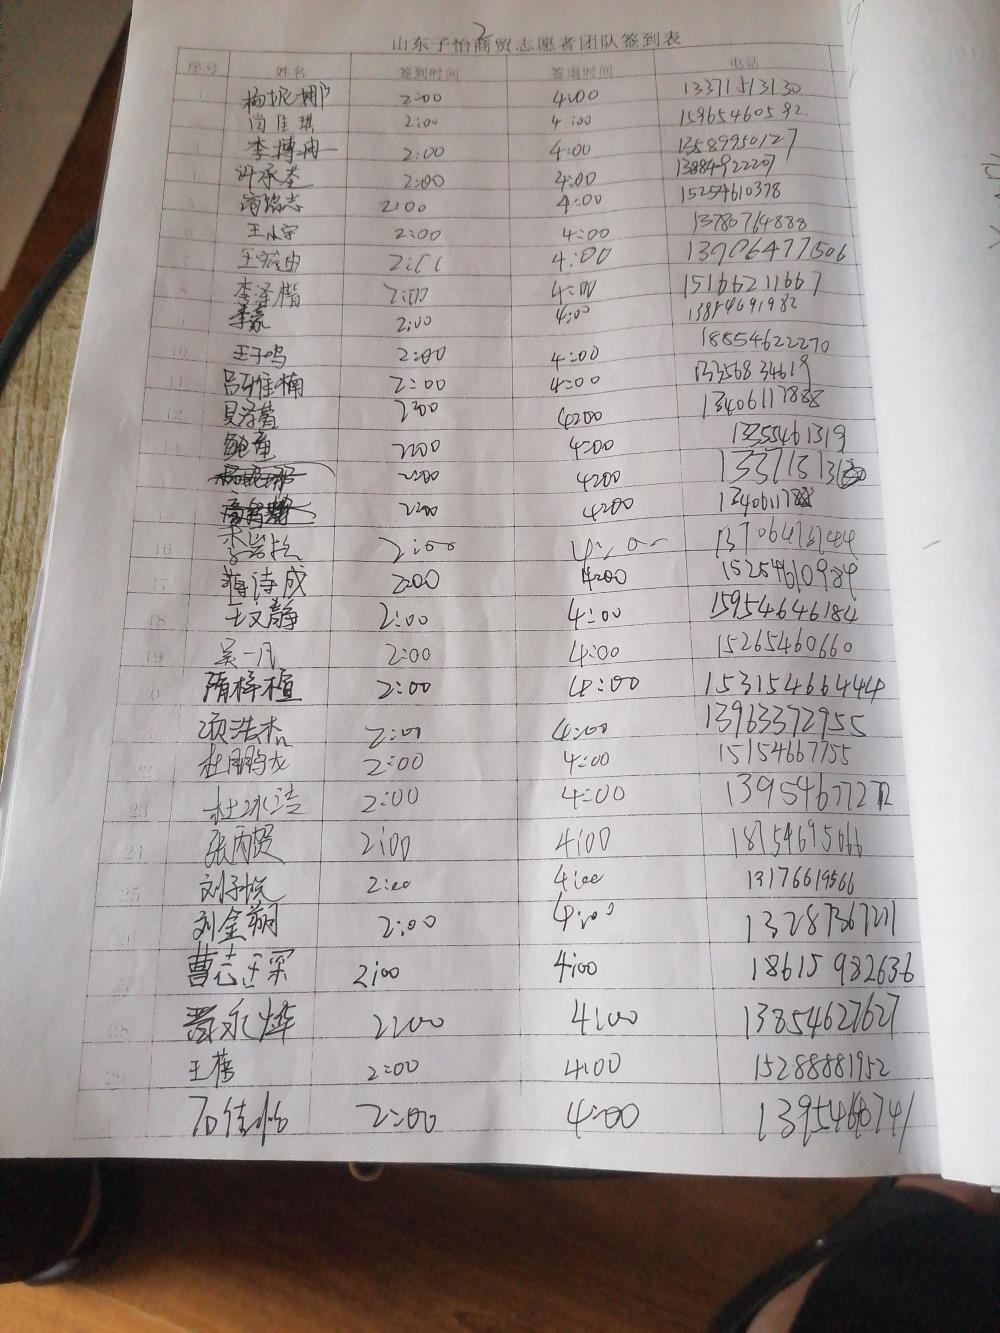 2
山东子怡商贸志愿者团队签到表
序号 姓名 签到时间 签退时间 电话
杨妮娜 2:00 4:00 13371513130
尚佳琪 2:00 4:00 15965460592
李博冉 2:00 4:00 13589950127
许承荃 2:00 4:00 13884922207
2:00 4:00 15254610378
5 王小宇 2:00 4:00 13780764888
7 2:00 4:00 13906477506
8 李泽楷 2:00 4:00 15166211667
9 李豪 2:00 4:00 13854691982
10 王子鸣 2:00 4:00 18854622270
11 吕雅楠 2:00 4:00 13356834619
12 2:00 4:00 13406117888
13 鲍童 2:00 4:00 13355461319
2:00 4:00
2:00 4:00
16 2:00 4:00
17 蒋诗成 2:00 4:00 15254610984
18 王文静 2:00 4:00 15954646184
19 吴一凡 2:00 4:00 15265460660
20 隋梓植 2:00 4:00 153154664444
项浩杰 2:00 4:00 13963372955
22 杜鹏龙 2:00 4:00 15154667755
23 杜冰洁 2:00 4:00
24 张丙贤 2:00 4:00 18754695066
25 刘子悦 2:00 4:00 13176619566
26 刘金翔 2:00 4:00 13287367211
27 曹志 2:00 4:00 18615982636
28 永烨 2:00 4:00 13854627627
29 王蓓 2:00 4:00 15288881952
石佳怡 2:00 4:00